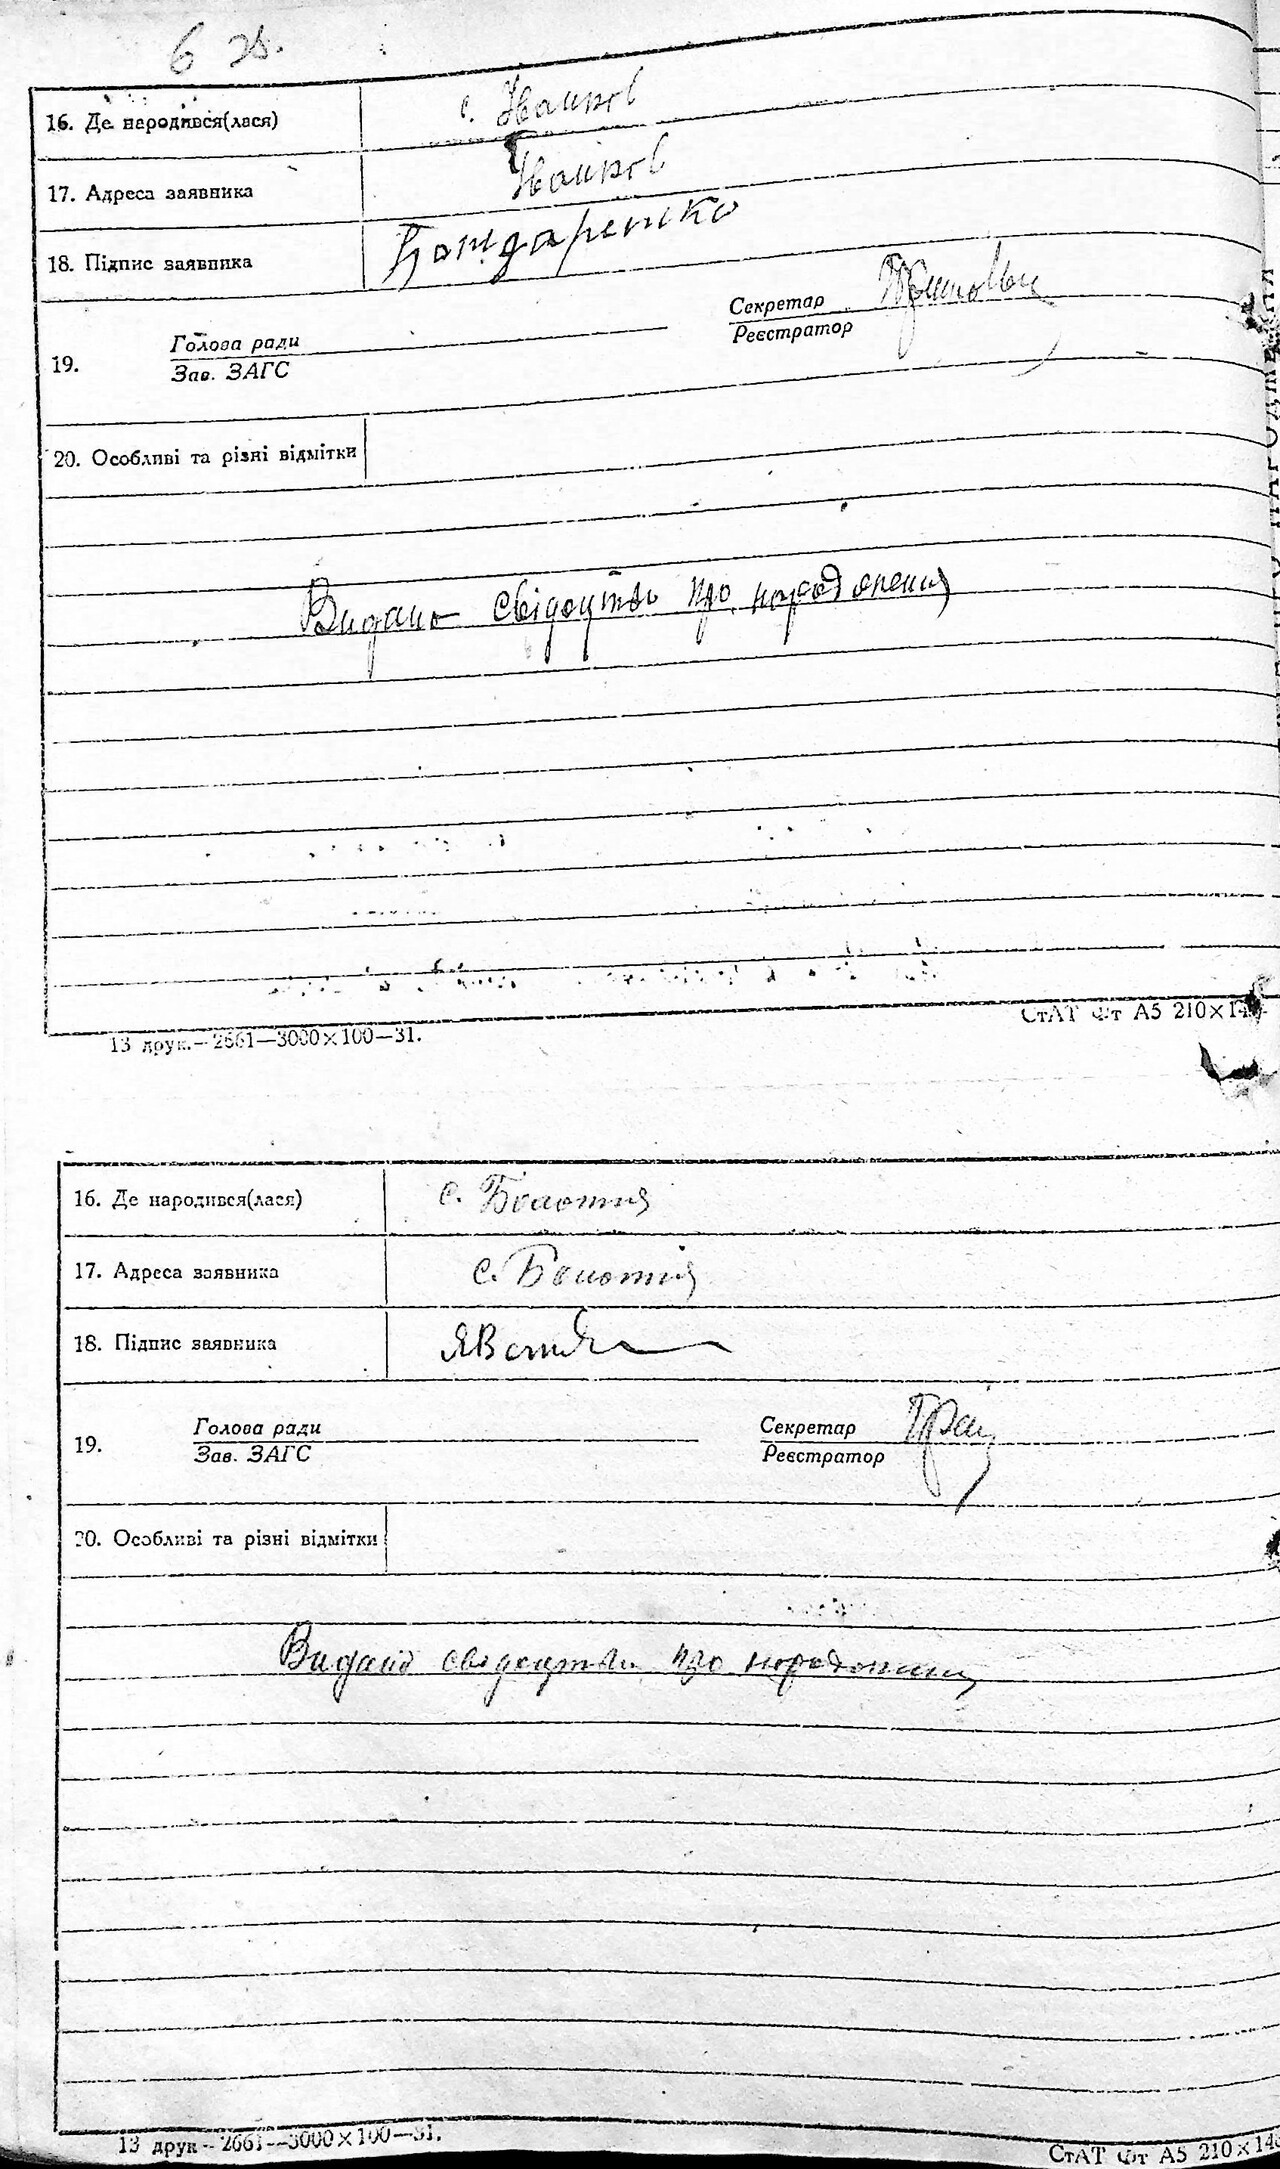 6 зв.
16. Де народився(лася) с.
17. Адреса заявника
18. Підпис заявника Бондаренко
Секретар
Реєстратор
Голова ради
Зав. ЗАГС
19.
20. Особливі та різні відмітки
Видано свідоцтво про народження
13 друк.—2661—3000×100—31.
СтАТ Фт А5 210×148
16. Де народився(лася) с. Болотня
17. Адреса заявника с. Болотня
18. Підпис заявника
19.
Голова ради
Зав. ЗАГС
Секретар
Реєстратор
20. Особливі та різні відмітки
Видано свідоцтво про народження
13 друк—2661—3000×100—31.
СтАТ Фт А5 210×148